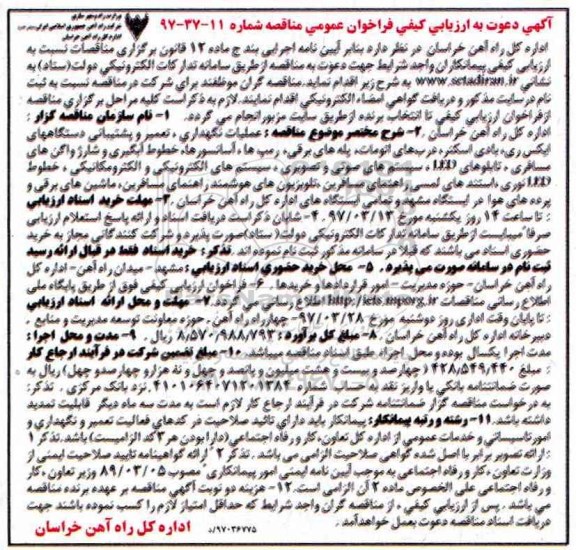 آگهي دعوت به ارزيابي كيفي فراخوان عمومي مناقصه شماره ۱۱-۳۷-۹۷
اداره كل راه آهن خراسان در نظر دارد بنابر آيين نامه اجرايي بند ج ماده ۱۲ قانون برگزاري مناقصات نسبت به
ارزيابي كيفي پيمانكاران واجد شرايط جهت دعوت به مناقصه از طريق سامانه تداركات الكترونيكي دولت(ستاد) به
نشاني www.setadiran.ir به شرح زير اقدام نمايد.مناقصه گران موظفند براي شركت در مناقصه نسبت به ثبت
نام در سايت مذكور و دريافت گواهي امضاء الكترونيكي اقدام نمايند.لازم به ذكر است كليه مراحل برگزاري مناقصه
از فراخوان ارزيابي كيفي تا انتخاب برنده از طريق سايت مزبور انجام مي گردد. ۱- نام سازمان مناقصه گزار :
اداره كل راه آهن خراسان .۲- شرح مختصر موضوع مناقصه : عمليات نگهداري ، تعمير و پشتيباني دستگاههاي
ايكس ري، بادي اسكنر، درب هاي اتومات، پله هاي برقي، رمپ ها ، آسانسورها، خطوط آبگيري و شارژ واگن هاي
مسافري ، تابلوهاي LED ، سيستم هاي صوتي و تصويري ، سيستم هاي الكترونيكي و الكترومكانيكي ، خطوط
LED نوري ،استند هاي لمسي راهنماي مسافرين ،تلويزيون هاي هوشمند راهنماي مسافرين، ماشين هاي برقي و
پرده هاي هوا در ايستگاه مشهد و تمامي ايستگاه هاي اداره كل راه آهن خراسان .۳- مهلت خريد اسناد ارزيابي
: تا ساعت ۱۴ روز يكشنبه مورخ ۹۷/۰۳/۱۳ .۴- شايان ذكر است دريافت اسناد و ارائه پاسخ استعلام ارزيابي
صرفاً ميبايست از طريق سامانه تداركات الكترونيكي دولت( ستاد)صورت پذيرد و شركت كنندگاني مجاز به خريد
حضوري اسناد مي باشند كه قبلا در سامانه مذكور ثبت نام نموده اند. تذكر : خريد اسناد فقط در قبال ارائه رسيد
ثبت نام در سامانه صورت مي پذيرد. ۵- محل خريد حضوري اسناد ارزيابي : مشهد - ميدان راه آهن- اداره كل
راه آهن خراسان - حوزه مديريت - امور قراردادها و خريدها . ۶- فراخوان ارزيابي كيفي فوق از طريق پايگاه ملي
اطلاع رساني مناقصات http://iets.mporg.ir اطلاع رساني ۷- مهلت و محل ارائه اسناد ارزيابي
: تا پايان وقت اداري روز دوشنبه مورخ ۹۷/۰۳/۲۸- چهارراه راه آهن ، حوزه معاونت توسعه مديريت و منابع ،
دبيرخانه اداره كل راه آهن خراسان .۸- مبلغ كل برآورد : ۸/۵۷۰/۹۸۸/۷۹۳ ريال . ۹- مدت و محل اجرا :
مدت اجرا يكسال بوده و محل اجرا، طبق اسناد مناقصه ميباشد .۱۰- مبلغ تضمين شركت در فرآيند ارجاع كار
: مبلغ ۴۲۸/۵۴۹/۴۴۰ (چهارصد و بيست و هشت ميليون و پانصد و چهل و نه هزار و چهارصد و چهل) ريال به
صورت ضمانتنامه بانكي يا واريز نقد نزد بانك مركزي . تذكر:
به درخواست مناقصه گزار ضمانتنامه شركت در فرآيند ارجاع كار لازم است به مدت سه ماه ديگر قابليت تمديد
داشته باشد.۱۱- رشته و رتبه پيمانكار: پيمانكار بايد داراي تائيد صلاحيت در كدهاي فعاليت تعمير و نگهداري و
امور تاسيساتي و خدمات عمومي از اداره كل تعاون ،كار و رفاه اجتماعي (دارا بودن هر ۳ كد الزاميست) باشد. تذكر ۱
: ارائه تصوير برابر با اصل شده گواهي صلاحيت الزامي مي باشد . تذكر ۲ : ارائه گواهينامه تاييد صلاحيت ايمني از
وزارت تعاون ،كار و رفاه اجتماعي به موجب آيين نامه ايمني امور پيمانكاري مصوب ۸۹/۰۳/۰۵ وزير تعاون ،كار
و رفاه اجتماعي علي الخصوص ماده ۲ آن الزامي است.۱۲- هزينه دو نوبت آگهي مناقصه بر عهده برنده مناقصه
مي باشد . پس از ارزيابي كيفي ، از مناقصه گران واجد شرايط كه حداقل امتياز لازم را كسب نموده باشند جهت
دريافت اسناد مناقصه دعوت بعمل خواهد آمد .
اداره كل راه آهن خراسان
۹۷۰۳۶۷۷۵/۵